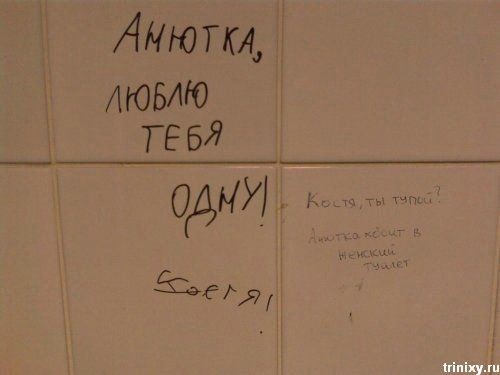 Анютка,
люблю
тебя
одну!
Костя!
Костя, ты тупой?
Анютка ходит в
женский
туалет
trinixy.ru